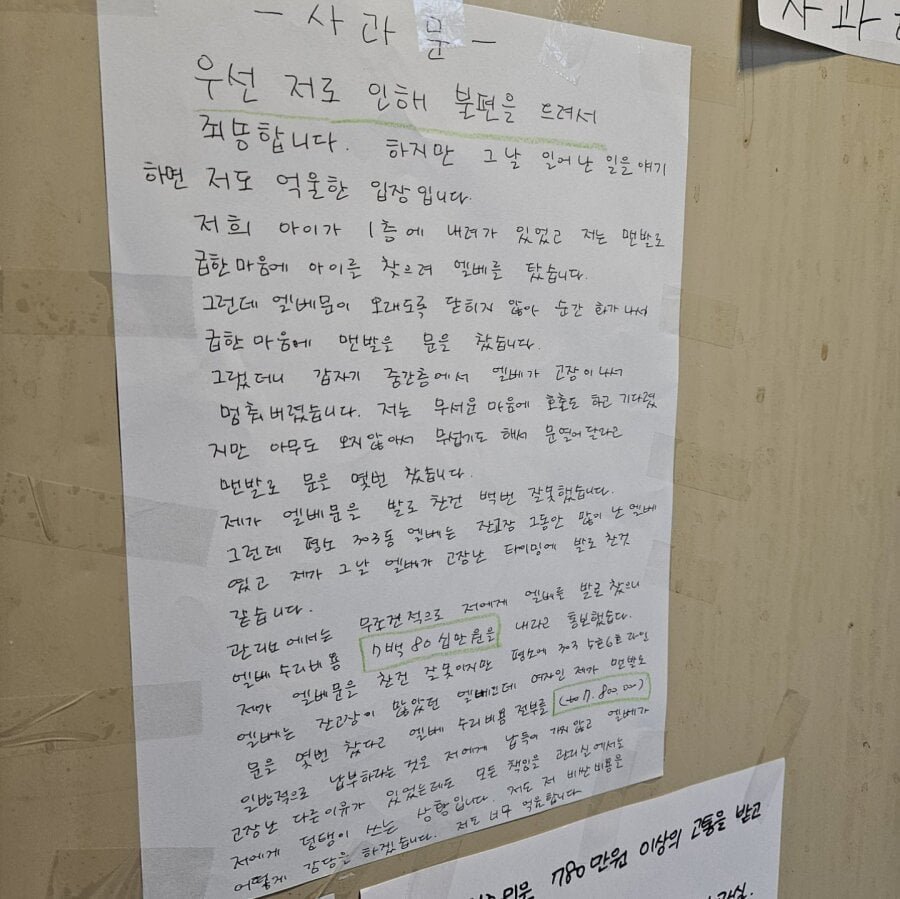 - 사 과 문 -
우선 저로 인해 불편을 드려서
죄송합니다. 하지만 그날 일어난 일을 얘기
하면 저도 억울한 입장입니다.
저희 아이가 1층에 내려가 있었고 저는 맨발로
급한 마음에 아이를 찾으려 엘베를 탔습니다.
그런데 엘베문이 오래도록 닫히지 않아 순간 화가 나서
급한 마음에 맨발을 문을 찼습니다.
그랬더니 갑자기 중간층에서 엘베가 고장이 나서
멈춰버렸습니다. 저는 무서운 마음에 호출도 하고 기다렸
지만 아무도 오지않아서 무섭기도 해서 문열어달라고
맨발로 문을 몇번 찼습니다.
제가 엘베문을 발로 찬건 백번 잘못했습니다.
그런데 평소 303동 엘베는 잔고장 그동안 많이 난 엘베
였고 제가 그날 엘베가 고장난 타이밍에 발로 찬것
같습니다.
관리소에서는 무조건적으로 저에게 엘베를 발로 찼으니
엘베 수리비용 7백 80 십만원을 내라고 통보했습니다.
제가 엘베문을 찬건 잘못이지만 평소에 303 5호6호라인
엘베는 잔고장이 많았던 엘베인데 여자인 제가 맨발로
문을 몇번 찼다고 엘베 수리비용 전부를 (₩7.800.000)
일방적으로 납부하라는 것은 저에게 납득이 가지 않고 엘베가
고장난 다른이유가 있었는데도 모든 책임을 관리실에서는
저에게 덤탱이 쓰는 상황입니다. 저도 저 비싼비용을
어떻게 감당을 하겠습니다. 저도 너무 억울합니다
사 과
780만원 이상의 고통을 받고